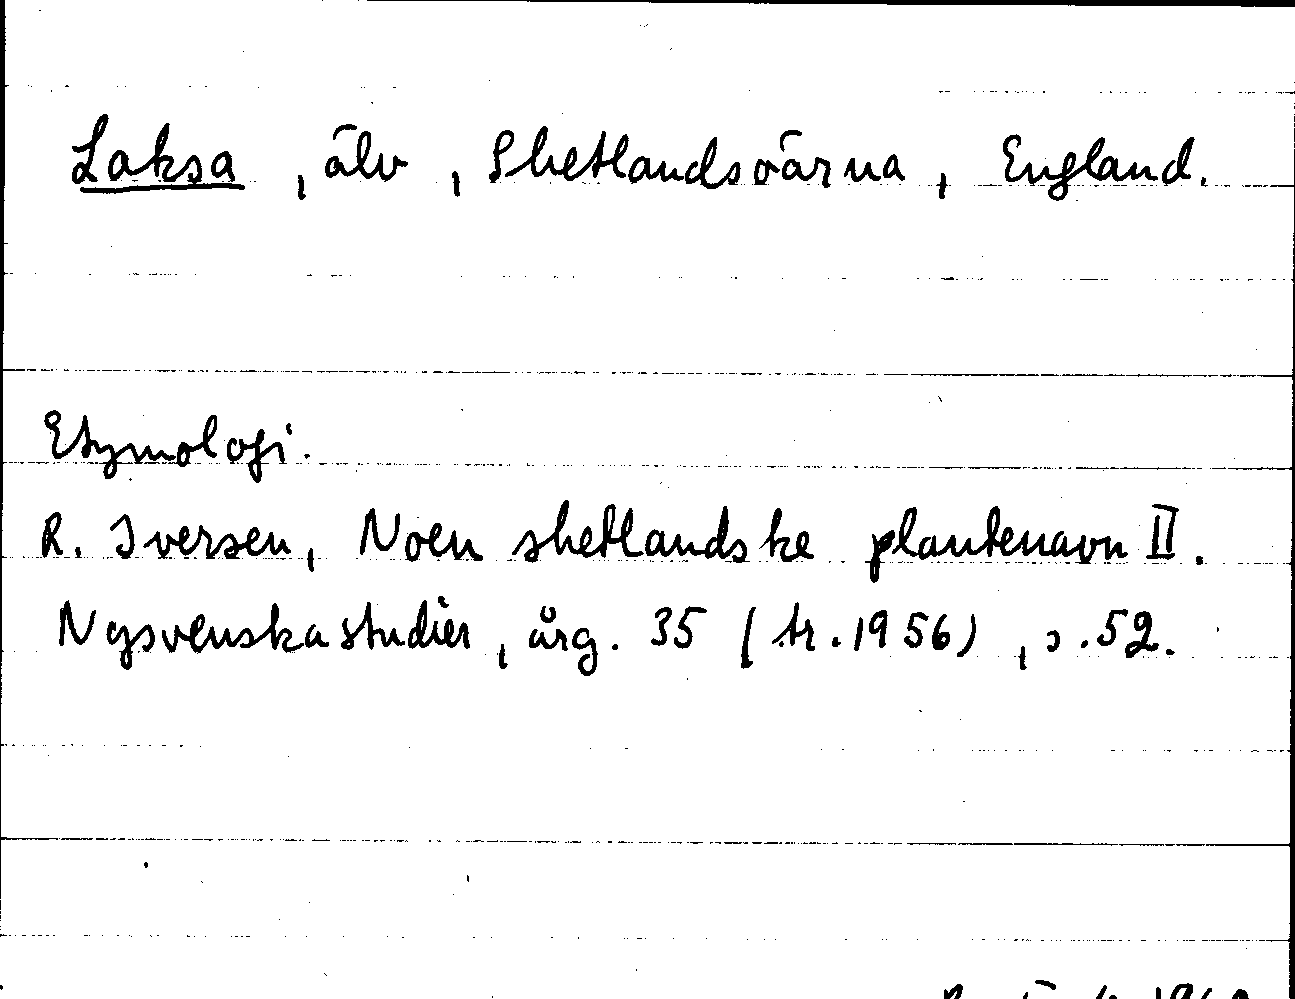 Laksa, älv, Shetlandsöarna, England.
Etymologi.
R. Iversen, Noen shetlandske plantenavn II.
Nysvenska studier, årg. 35 (tr. 1956), s. 52.